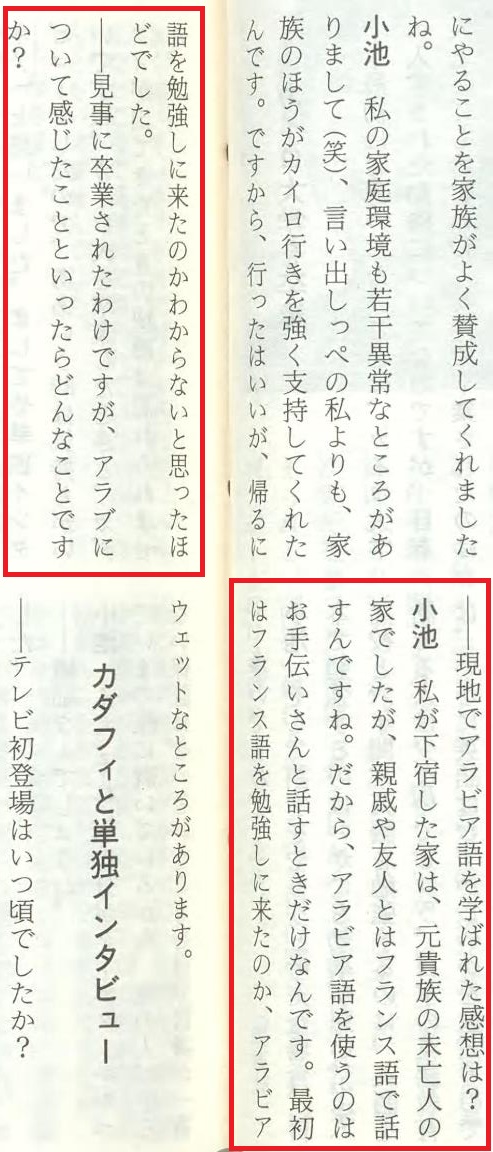 にやることを家族がよく賛成してくれました
ね。
小池　私の家庭環境も若干異常なところがあ
りまして（笑）、言い出しっぺの私よりも、家
族のほうがカイロ行きを強く支持してくれた
んです。ですから、行ったはいいが、帰るに
――現地でアラビア語を学ばれた感想は？
小池　私が下宿した家は、元貴族の未亡人の
家でしたが、親戚や友人とはフランス語で話
すんですね。だから、アラビア語を使うのは
お手伝いさんと話すときだけなんです。最初
はフランス語を勉強しに来たのか、アラビア
語を勉強しに来たのかわからないと思ったほ
どでした。
――見事に卒業されたわけですが、アラブに
ついて感じたことといったらどんなことです
か？
ウェットなところがあります。
カダフィと単独インタビュー
――テレビ初登場はいつ頃でしたか？